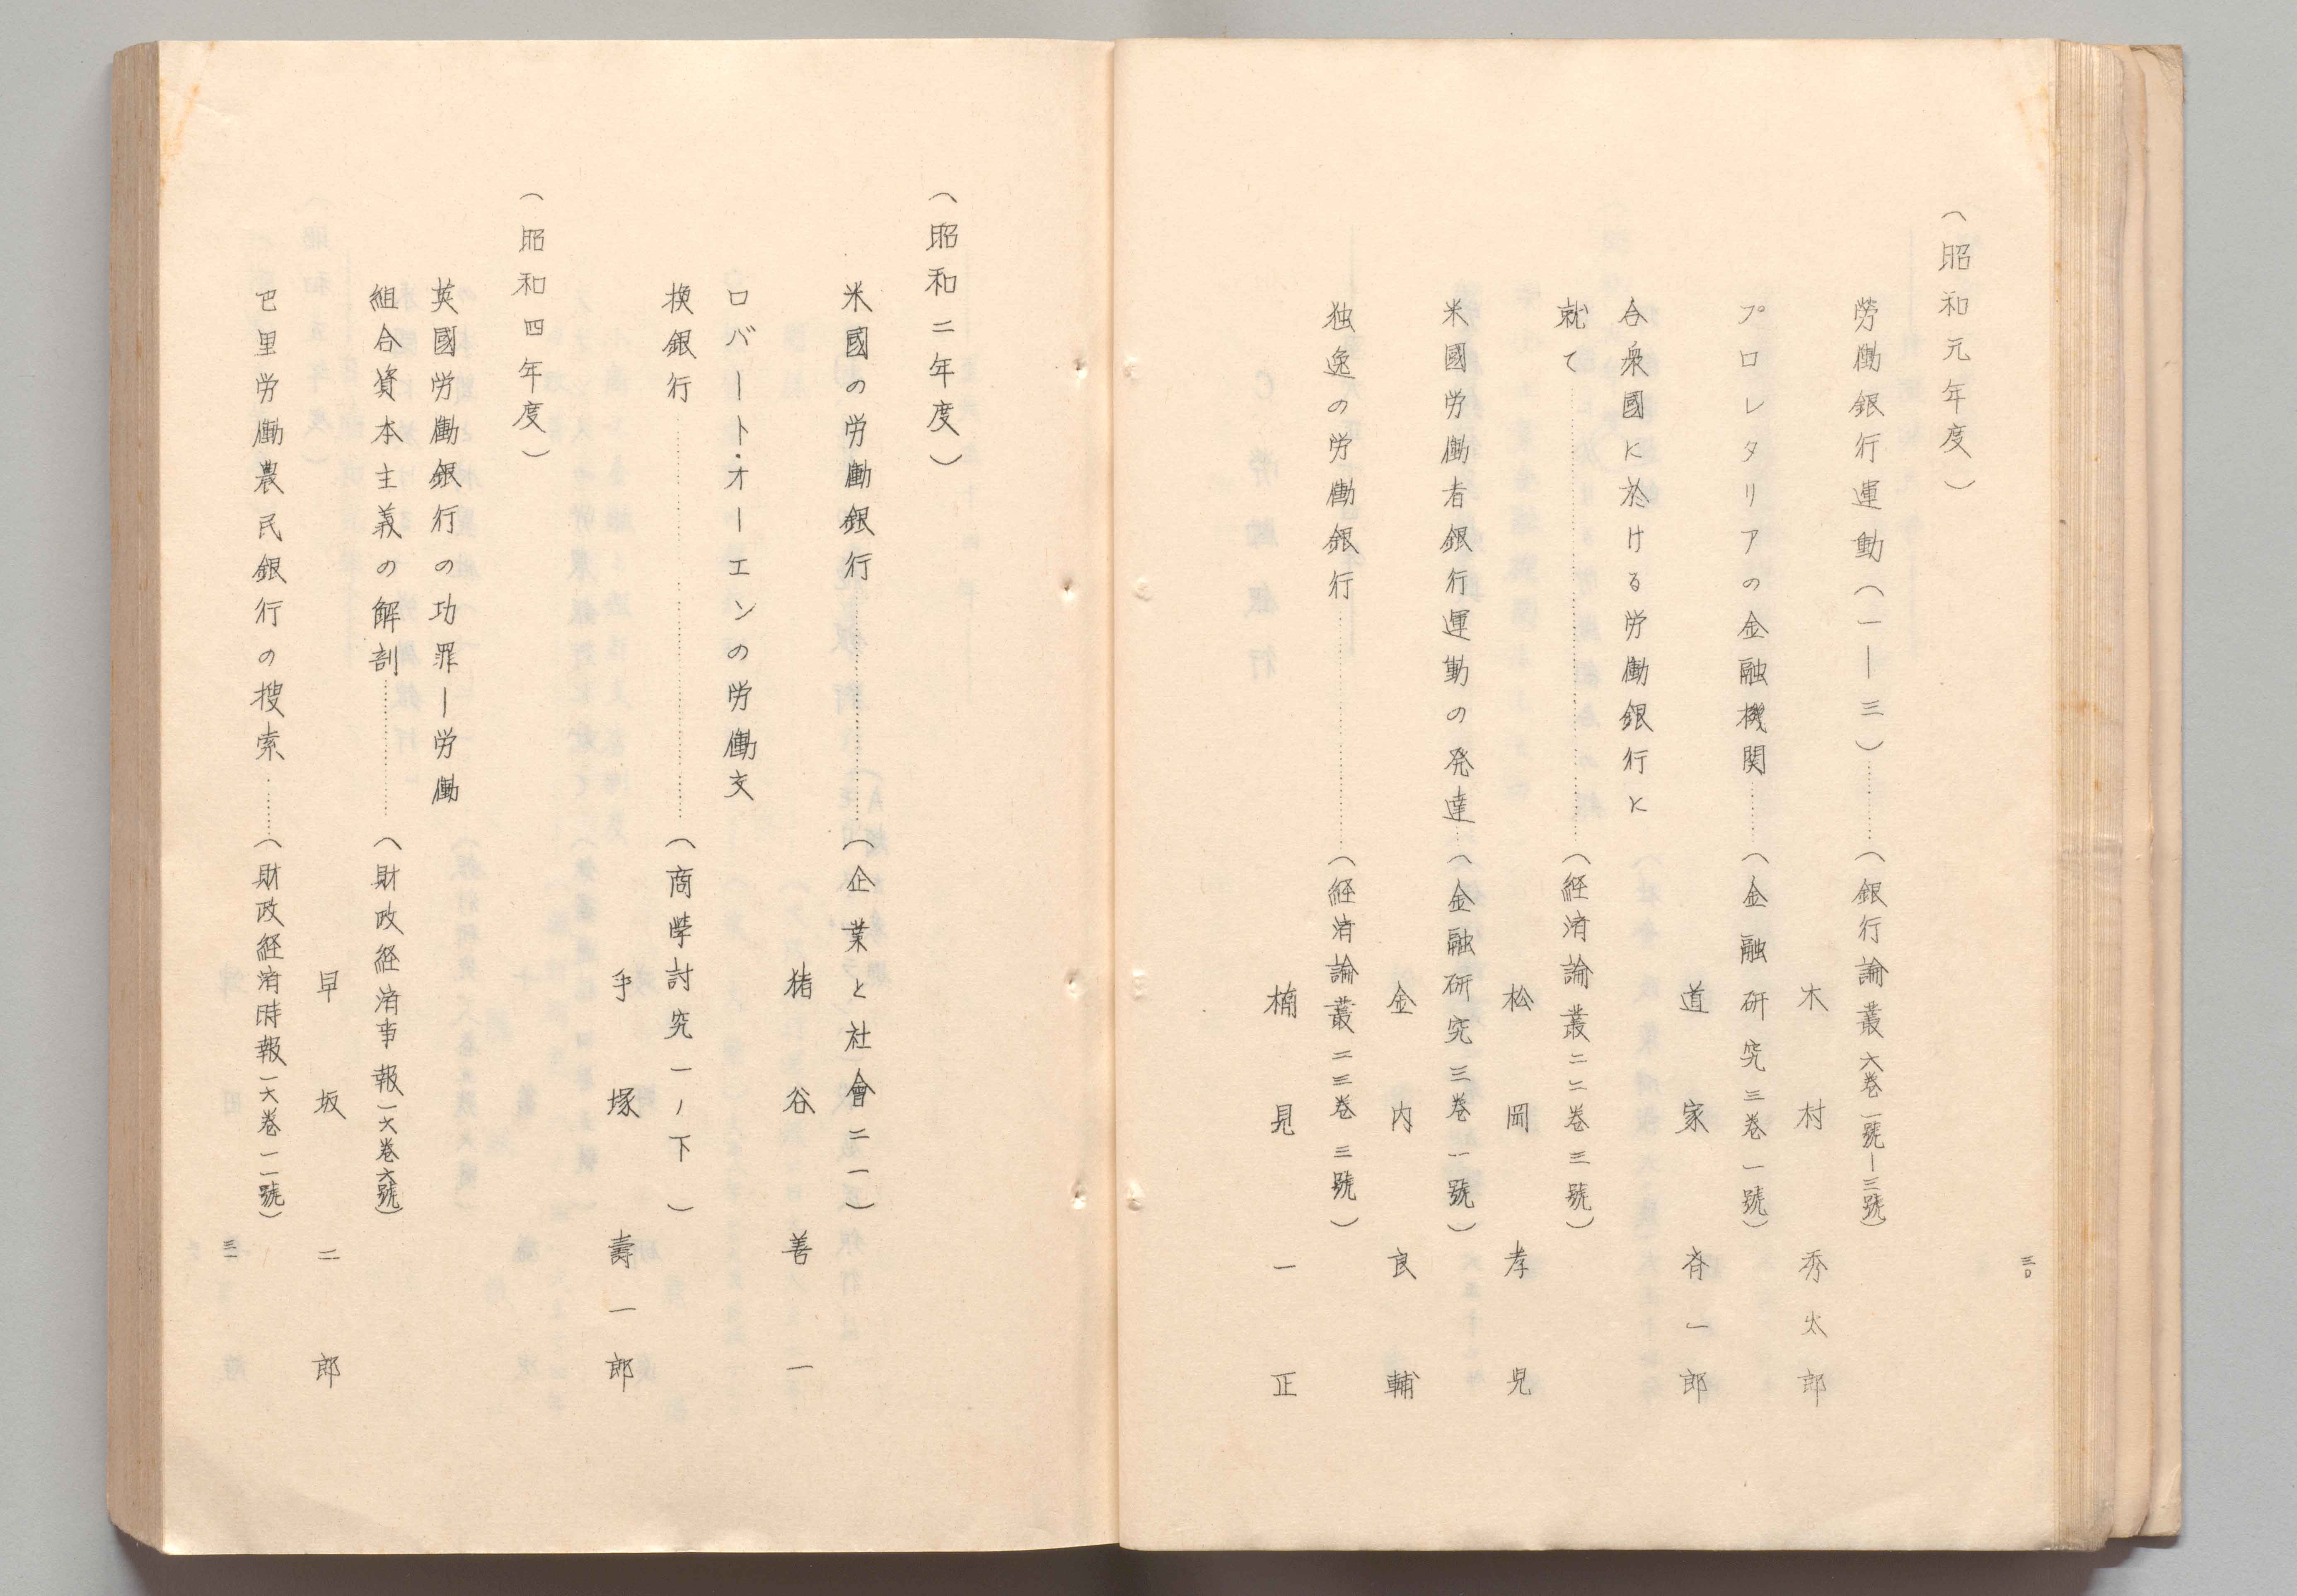 (昭和元年度)
勞働銀行運動(一―三)………(銀行論叢六巻一號―三號)
木村秀太郎
プロレタリアの金融機関………(金融研究三巻一號)
道家斉一郎
合衆國に於ける労働銀行に
就て………(経済論叢二二巻三號)
松岡孝児
米國労働者銀行運動の発達…(金融研究三巻一號)
金内良輔
独逸の労働銀行………(経済論叢二三巻三號)
楠見一正
三〇
(昭和二年度)
米國の労働銀行………(企業と社會二一)
猪谷善一
ロバート・オーエンの労働交
換銀行………(商学討究一ノ下)
手塚壽一郎
(昭和四年度)
英國労働銀行の功罪―労働
組合資本主義の解剖………(財政経済事報一六巻六號)
早坂二郎
巴里労働農民銀行の捜索………(財政経済時報一六巻一一號)
三一